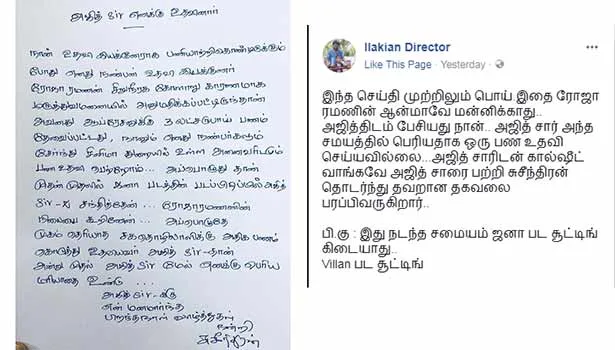 அஜித் Sir எனக்கு உதவினார்
நான் உதவி இயக்குனராக பணியாற்றிகொண்டிருக்கும்
போது எனது நண்பன் உதவி இயக்குனர்
ரோஜாரமணன் சிறுநீரக கோளாறு காரணமாக
மருத்துவமனையில் அனுமதிக்கப்பட்டிருந்தான்
அவனது ஆபரேசனுக்கு 3 லட்சரூபாய் பணம்
தேவைப்பட்டது, நானும் எனது நண்பர்களும்
சேர்ந்து சினிமா துறையில் உள்ள அனைவரிடமும்
பண உதவி பெற்றோம்... அப்பொழுது தான்
முதன் முதலில் ஜனா படத்தின் படப்பிடிப்பில் அஜித்
Sir-ஐ சந்தித்தேன்... ரோஜாரமணனின்
நிலையை கூறினேன்... அப்பொழுதே
முகம் தெரியாத சகதொழிலாளிக்கு அதிக பணம்
கொடுத்து உதவியவர் அஜித் Sir-தான்
அன்று முதல் அஜித் Sir மேல் எனக்கு பெரிய
மரியாதை உண்டு...
அஜித் Sir-க்கு
என் மனமார்ந்த
பிறந்தநாள் வாழ்த்துகள்
நன்றி
சுசீந்திரன்
Ilakian Director
Like This Page · Yesterday ·
இந்த செய்தி முற்றிலும் பொய்.இதை ரோஜா
ரமணின் ஆன்மாவே மன்னிக்காது..
அஜித்திடம் பேசியது நான்.. அஜித் சார் அந்த
சமயத்தில் பெரியதாக ஒரு பண உதவி
செய்யவில்லை...அஜித் சாரிடன் கால்ஷிட்
வாங்கவே அஜித் சாரை பற்றி சுசீந்திரன்
தொடர்ந்து தவறான தகவலை
பரப்பிவருகிறார்..
பி.கு : இது நடந்த சமையம் ஜனா பட சூட்டிங்
கிடையாது..
Villan பட சூட்டிங்